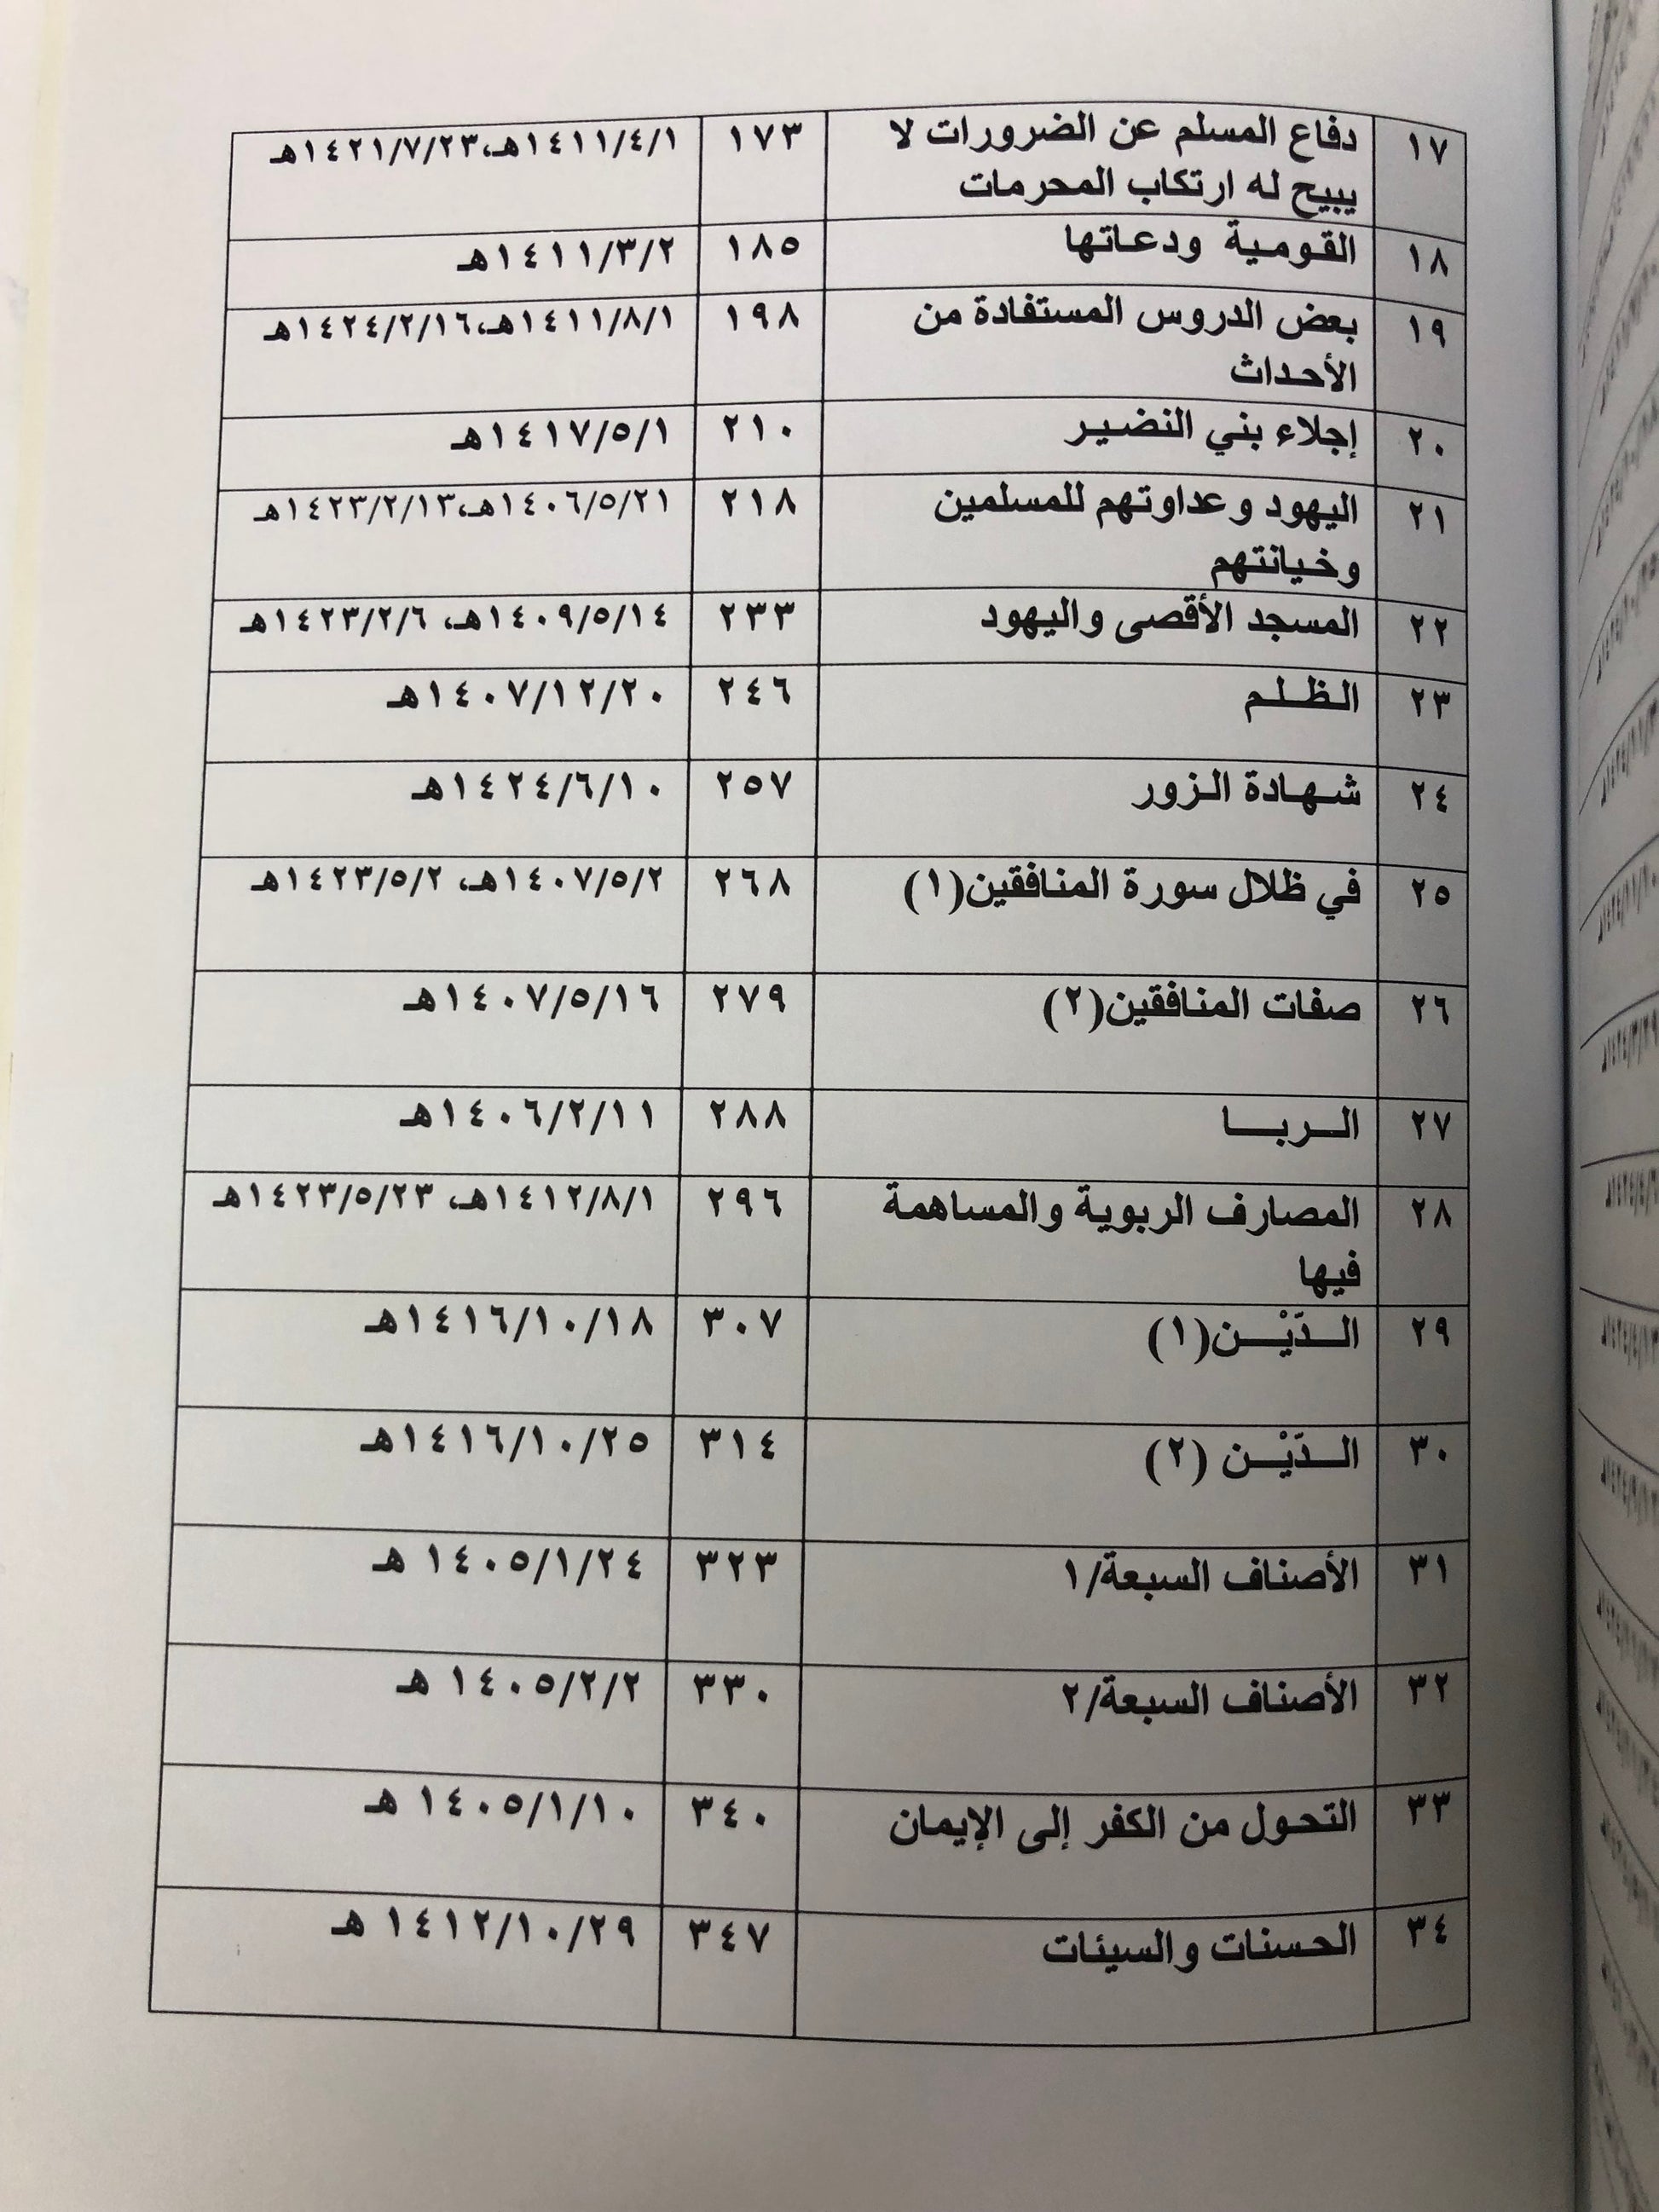 ١٧ دفاع المسلم عن الضرورات لا ١٧٣ ١٤١١/٤/١هـ،١٤٢١/٧/٢٣هـ
يبيح له ارتكاب المحرمات
١٨ القومية ودعاتها ١٨٥ ١٤١١/٣/٢هـ
١٩ بعض الدروس المستفادة من ١٩٨ ١٤١١/٨/١هـ،١٤٢٤/٢/١٦هـ
الأحداث
٢٠ إجلاء بني النضير ٢١٠ ١٤١٧/٥/١هـ
٢١ اليهود وعداوتهم للمسلمين ٢١٨ ١٤٠٦/٥/٢١هـ،١٤٢٣/٢/١٣هـ
وخيانتهم
٢٢ المسجد الأقصى واليهود ٢٣٣ ١٤٠٩/٥/١٤هـ، ١٤٢٣/٢/٦هـ
٢٣ الظلم ٢٤٦ ١٤٠٧/١٢/٢٠هـ
٢٤ شهادة الزور ٢٥٧ ١٤٢٤/٦/١٠هـ
٢٥ في ظلال سورة المنافقين(١) ٢٦٨ ١٤٠٧/٥/٢هـ، ١٤٢٣/٥/٢هـ
٢٦ صفات المنافقين(٢) ٢٧٩ ١٤٠٧/٥/١٦هـ
٢٧ الربا ٢٨٨ ١٤٠٦/٢/١١هـ
٢٨ المصارف الربوية والمساهمة ٢٩٦ ١٤١٢/٨/١هـ، ١٤٢٣/٥/٢٣هـ
فيها
٢٩ الدَّيْن(١) ٣٠٧ ١٤١٦/١٠/١٨هـ
٣٠ الدَّيْن (٢) ٣١٤ ١٤١٦/١٠/٢٥هـ
٣١ الأصناف السبعة/١ ٣٢٣ ١٤٠٥/١/٢٤ هـ
٣٢ الأصناف السبعة/٢ ٣٣٠ ١٤٠٥/٢/٢ هـ
٣٣ التحول من الكفر إلى الإيمان ٣٤٠ ١٤٠٥/١/١٠ هـ
٣٤ الحسنات والسيئات ٣٤٧ ١٤١٢/١٠/٢٩ هـ